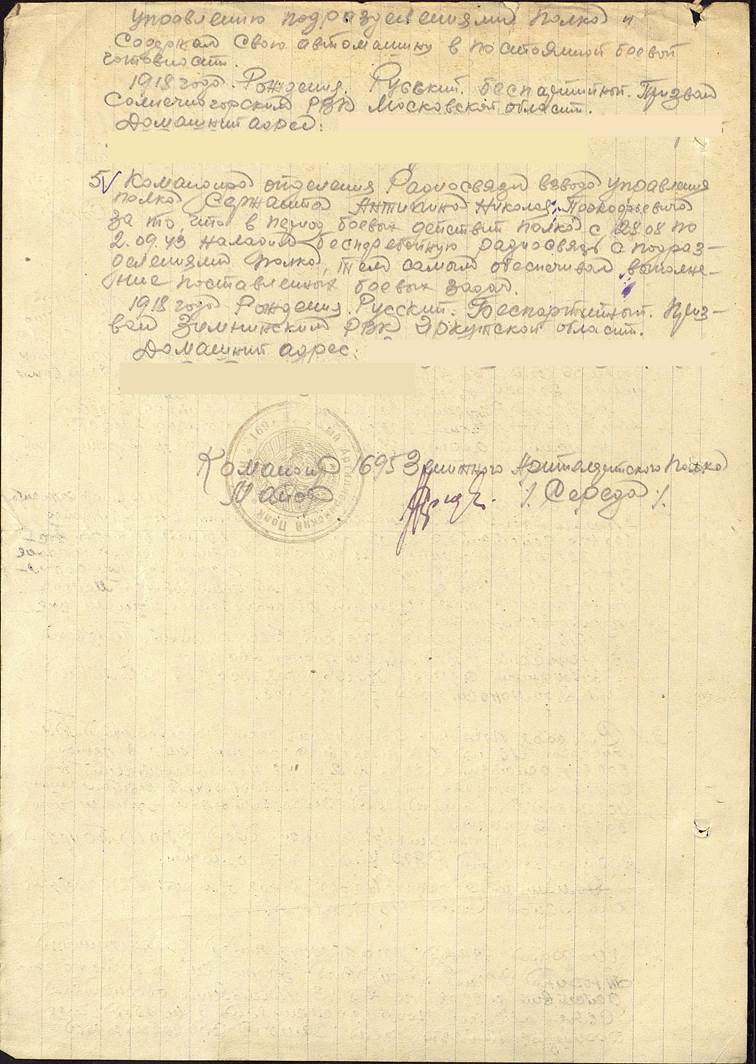 управлению подразделениями полка и
содержал свою автомашину в постоянной боевой
готовности.
1918 года Рождения. Русский. Беспартийный. Призван
Солнечногорским РВК Московской области.
Домашний адрес:
5. Командира отделения Радиосвязи взвода управления
полка Сержанта Антипина Николая Прокофьевича
за то, что в период боевых действий полка с 28.08 по
2.09.43 наладил бесперебойную радиосвязь с подраз-
делениями полка, тем самым обеспечивал выполне-
ние поставленных боевых задач.
1918 года Рождения. Русский. Беспартийный. Приз-
ван Зиминским РВК Иркутской области.
Домашний адрес:
Командир 1695 Зенитного Артиллерийского Полка
Майор /Середа/